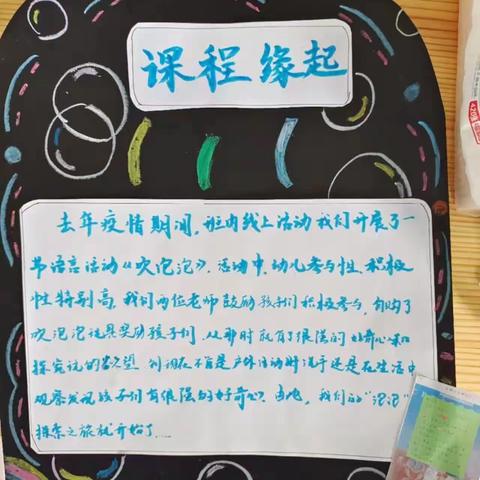 课程缘起
去年疫情期间,班内线上活动我们开展了一
节语言活动《吹泡泡》,活动中,幼儿参与性、积极
性特别高,我们两位老师鼓励孩子们积极参与,自购了
吹泡泡玩具奖励孩子们,从那时就有了很强的好奇心和
探究说的欲望,到现在不管是户外活动时洗手还是在生活中
观察发现孩子们有很强的好奇心?由此,我们的“泡泡”
探索之旅就开始了……